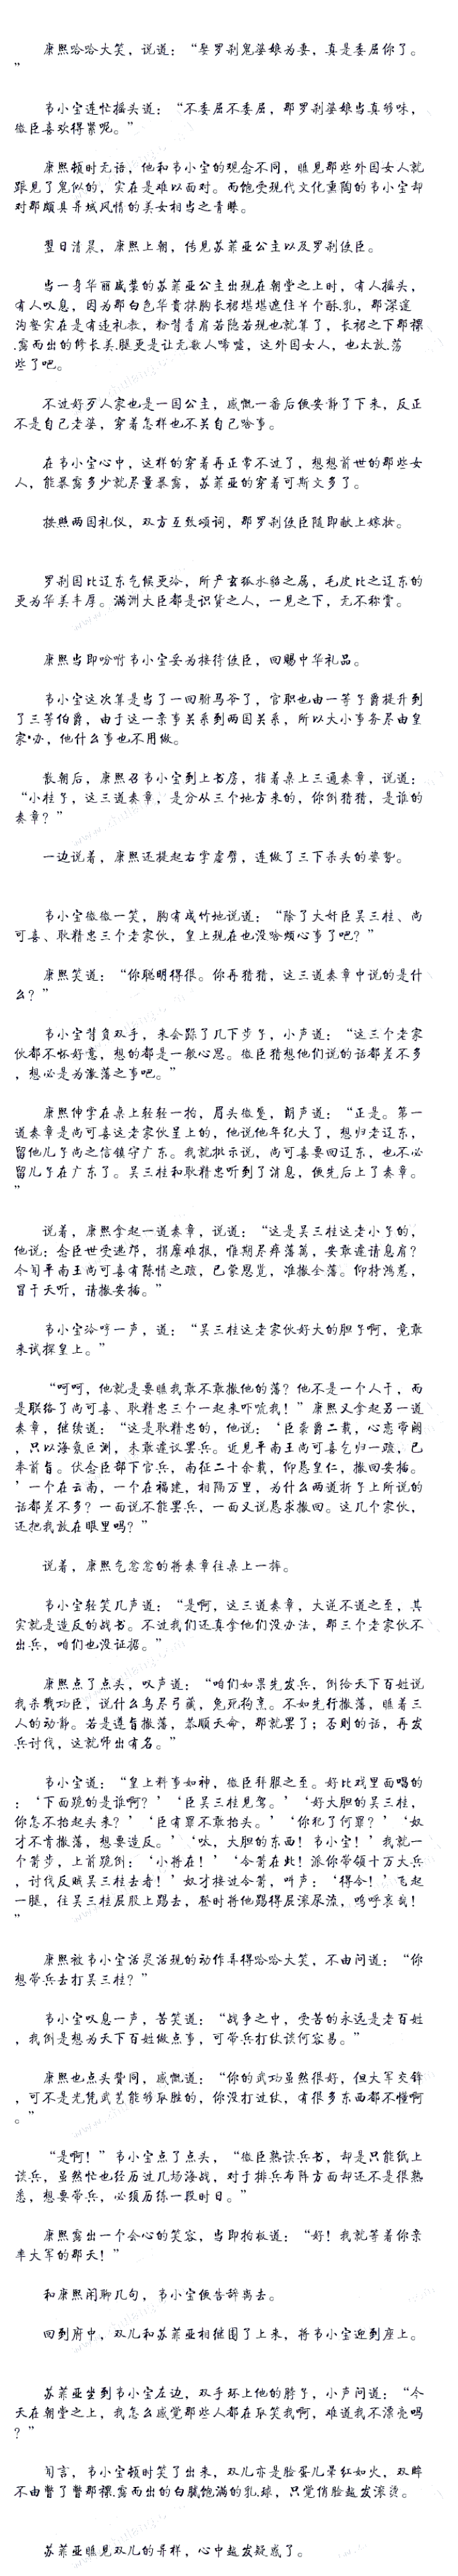 康熙哈哈大笑，说道：“娶罗刹鬼婆娘为妻，真是委屈你了。
”
韦小宝连忙摇头道：“不委屈不委屈，那罗刹婆娘当真够味，
微臣喜欢得紧呢。”
康熙顿时无语，他和韦小宝的观念不同，瞧见那些外国女人就
跟见了鬼似的，实在是难以面对。而饱受现代文化熏陶的韦小宝却
对那颇具异域风情的美女相当之青睐。
翌日清晨，康熙上朝，传见苏菲亚公主以及罗刹使臣。
当一身华丽盛装的苏菲亚公主出现在朝堂之上时，有人摇头，
有人叹息，因为那白色华贵抹胸长裙堪堪遮住半个酥.乳，那深邃
沟壑实在是有违礼教，粉背香肩若隐若现也就算了，长裙之下那裸
.露而出的修长美.腿更是让无数人唏嘘，这外国女人，也太放.荡
些了吧。
不过好歹人家也是一国公主，感慨一番后便安静了下来，反正
不是自己老婆，穿着怎样也不关自己啥事。
在韦小宝心中，这样的穿着再正常不过了，想想前世的那些女
人，能暴露多少就尽量暴露，苏菲亚的穿着可斯文多了。
按照两国礼仪，双方互致颂词，那罗刹使臣随即献上嫁妆。
罗刹国比辽东气候更冷，所产玄狐水貂之属，毛皮比之辽东的
更为华美丰厚。满洲大臣都是识货之人，一见之下，无不称赏。
康熙当即吩咐韦小宝妥为接待使臣，回赐中华礼品。
韦小宝这次算是当了一回驸马爷了，官职也由一等子爵提升到
了三等伯爵，由于这一亲事关系到两国关系，所以大小事务尽由皇
家·办，他什么事也不用做。
散朝后，康熙召韦小宝到上书房，指着桌上三通奏章，说道：
“小桂子，这三道奏章，是分从三个地方来的，你倒猜猜，是谁的
奏章？”
一边说着，康熙还提起右掌虚劈，连做了三下杀头的姿势。
韦小宝微微一笑，胸有成竹地说道：“除了大奸臣吴三桂、尚
可喜、耿精忠三个老家伙，皇上现在也没啥烦心事了吧？”
康熙笑道：“你聪明得很。你再猜猜，这三道奏章中说的是什
么？”
韦小宝背负双手，来会踱了几下步子，小声道：“这三个老家
伙都不怀好意，想的都是一般心思。微臣猜想他们说的话都差不多
，想必是为撤藩之事吧。”
康熙伸掌在桌上轻轻一拍，眉头微蹙，朗声道：“正是。第一
道奏章是尚可喜这老家伙呈上的，他说他年纪大了，想归老辽东，
留他儿子尚之信镇守广东。我就批示说，尚可喜要回辽东，也不必
留儿子在广东了。吴三桂和耿精忠听到了消息，便先后上了奏章。
”
说着，康熙拿起一道奏章，说道：“这是吴三桂这老小子的，
他说：念臣世受选部，捐糜难报，惟期尽瘁藩篱，安敢遽请息肩？
今闻平南王尚可喜有陈情之疏，已蒙恩览，准撤全藩。仰持鸿慈，
冒干天听，请撤安插。”
韦小宝冷哼一声，道：“吴三桂这老家伙好大的胆子啊，竟敢
来试探皇上。”
“呵呵，他就是要瞧我敢不敢撤他的藩？他不是一个人干，而
是联络了尚可喜、耿精忠三个一起来吓唬我！”康熙又拿起另一道
奏章，继续道：“这是耿精忠的，他说：‘臣袭爵二载，心恋帝阙
，只以海氛叵测，未敢遽议罢兵。近见平南王尚可喜乞归一疏，已
奉前旨。伏念臣部下官兵，南征二十余载，仰恳皇仁，撤回安插。
’一个在云南，一个在福建，相隔万里，为什么两道折子上所说的
话都差不多？一面说不能罢兵，一面又说恳求撤回。这几个家伙，
还把我放在眼里吗？”
说着，康熙气忿忿的将奏章往桌上一摔。
韦小宝轻笑几声道：“是啊，这三道奏章，大逆不道之至，其
实就是造反的战书。不过我们还真拿他们没办法，那三个老家伙不
出兵，咱们也没证据。”
康熙点了点头，叹声道：“咱们如果先发兵，倒给天下百姓说
我杀戮功臣，说什么鸟尽弓藏，兔死狗烹。不如先行撤藩，瞧着三
人的动静。若是遵旨撤藩，恭顺天命，那就罢了；否则的话，再发
兵讨伐，这就师出有名。”
韦小宝道：“皇上料事如神，微臣拜服之至。好比戏里面唱的
：‘下面跪的是谁啊？’‘臣吴三桂见驾。’‘好大胆的吴三桂，
你怎不抬起头来？’‘臣有罪不敢抬头。’‘你犯了何罪？’‘奴
才不肯撤藩，想要造反。’‘呔，大胆的东西！韦小宝！’我就一
个箭步，上前跪倒：‘小将在！’‘令箭在此！派你带领十万大兵
，讨伐反贼吴三桂去者！’奴才接过令箭，叫声：‘得令！’飞起
一腿，往吴三桂屁股上踢去，登时将他踢得屁滚尿流，呜呼哀哉！
”
康熙被韦小宝活灵活现的动作弄得哈哈大笑，不由问道：“你
想带兵去打吴三桂？”
韦小宝叹息一声，苦笑道：“战争之中，受苦的永远是老百姓
，我倒是想为天下百姓做点事，可带兵打仗谈何容易。”
康熙也点头赞同，感慨道：“你的武功虽然很好，但大军交锋
，可不是光凭武艺能够取胜的，你没打过仗，有很多东西都不懂啊
。”
“是啊！”韦小宝点了点头，“微臣熟读兵书，却是只能纸上
谈兵，虽然忙也经历过几场海战，对于排兵布阵方面却还不是很熟
悉，想要带兵，必须历练一段时日。”
康熙露出一个会心的笑容，当即拍板道：“好！我就等着你亲
率大军的那天！”
和康熙闲聊几句，韦小宝便告辞离去。
回到府中，双儿和苏菲亚相继围了上来，将韦小宝迎到座上。
苏菲亚坐到韦小宝左边，双手环上他的脖子，小声问道：“今
天在朝堂之上，我怎么感觉那些人都在取笑我啊，难道我不漂亮吗
？”
闻言，韦小宝顿时笑了出来，双儿亦是脸蛋儿晕红如火，双眸
不由瞥了瞥那裸.露而出的白腻饱满的乳.球，只觉俏脸越发滚烫。
苏菲亚瞧见双儿的异样，心中越发疑惑了。